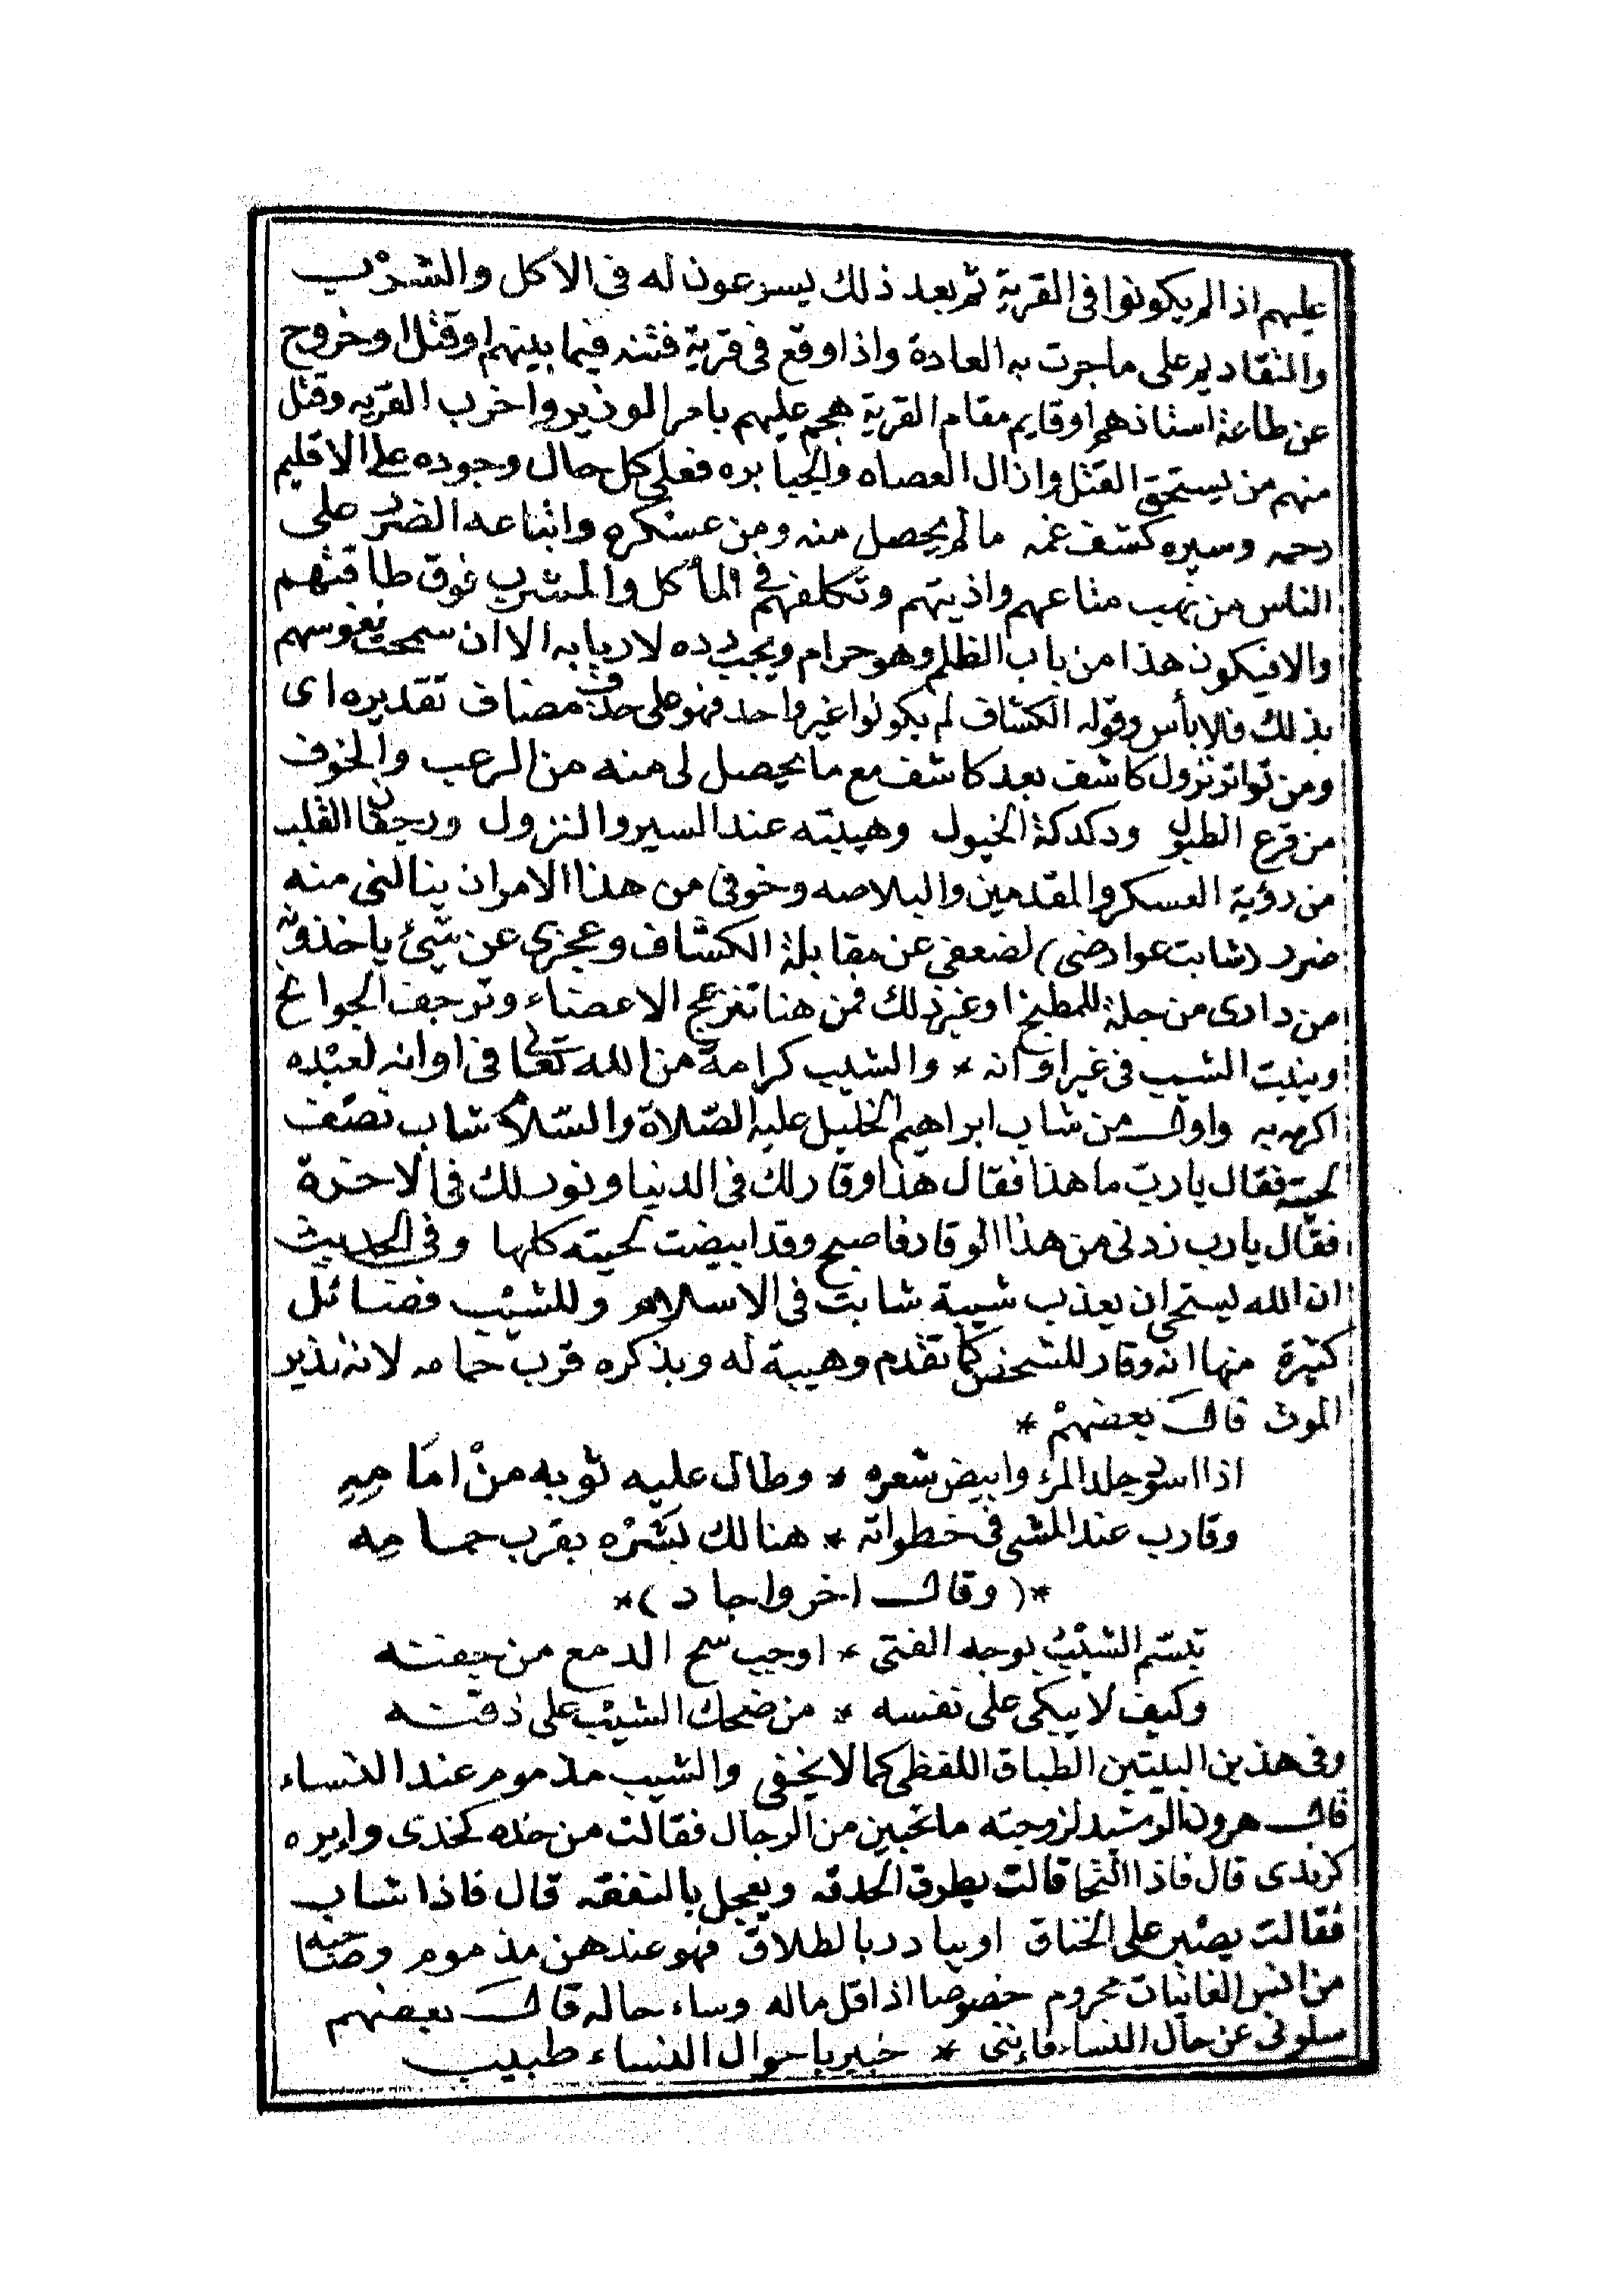 عليهم اذا لم يكونوا فى القرية ثم بعد ذلك يسرعون له فى الاكل والشرْب
والتقادير على ما جرت به العادة واذا وقع فى قرية فتنه فيما بينهم او قتل او خروج
عن طاعة استاذهم او قايم مقام القرية هجم عليهم بامر الوزير واخرب القريه وقتل
منهم من يستحق القتل وازال العصاه والجبابره فعلى كل حال وجوده على الاقليم
رحمه وسيره كشف غمه ما لم يحصل منه ومن عسكره واتباعه الضرر على
الناس من نهب متاعهم واذيتهم وتكلفهم فى المأكل والمشرب فوق طاقتهم
والا فيكون هذا من باب الظلم وهو حرام ويجب رده لاربابه الا ان سمحت نفوسهم
بذلك فالا بأس وقوله الكشاف لم يكونوا غير واحد فهو على حذف مضاف تقديره اى
ومن تواتر نزول كاشف بعد كاشف مع ما يحصل لى منه من الرعب والخوف
من قرع الطبول ودكدكة الخيول وهيبته عند السير والنزول ورجفان القلب
من رؤية العسكر والمقدمين والبلاصه وخوفى من هذا الامر ان ينالنى منه
ضرر (شابت عوارضى) لضعفى عن مقابلة الكشاف وعجزى عن شئ ياخذونه
من دارى من جلة للمطبخ او غير ذلك فمن هنا تنزعج الاعضاء وترجف الجوانح
وينبت الشيب فى غير اوانه * والشيب كرامة من الله تعالى فى اوانه لعبْده
اكرمه به واول من شاب ابراهيم الخليل عليه الصّلاة والسّلام شاب نصّف
لحيته فقال يا ربّ ما هذا فقال هذا وقار لك فى الدنيا ونور لك فى الاخرة
فقال يا رب زدنى من هذا الوقار فاصبح وقد ابيضت لحيته كلها وفى الحديث
ان الله ليستحى ان يعذب شيبة شابت فى الاسلام وللشيْب فضائل
كثيرة منها انه وقار للشخص كما تقدم وهيبة له ويذكره قرب حمامه لانه نذير
الموت قال بعضهمْ *
اذا اسود جلد المرء وابيض شعره * وطال عليه ثوبه منْ امَامِهِ
وقارب عند المشى فى خطواته * هنالك بَشّرْه بقرب حمامِه
*( وقال اخر واجاد )*
تبسّم الشيْبُ بوجه الفتى * اوجب سح الدمع من جفنته
وكيف لا يبكى على نفسه * من ضحك الشيْب على ذقنته
وفى هذين البيتين الطباق اللفظى كما لا يخفى والشيب مذموم عند النساء
قال هرون الرشيد لزوجته ما تحبين من الرجال فقالت من خده كخدى وايره
كزندى قال فاذا التحا قالت يطرق الحدقه ويعجل بالنفقه قال فاذا شاب
فقالت يصْبر على الخناق او يبادر بالطلاق فهو عندهن مذموم وصاحبه
من انس الغانيات محروم خصوصا اذا قل ماله وساء حاله قال بعضهم
سلونى عن حال النساء فإننى * خبير باحوال النساء طبيب